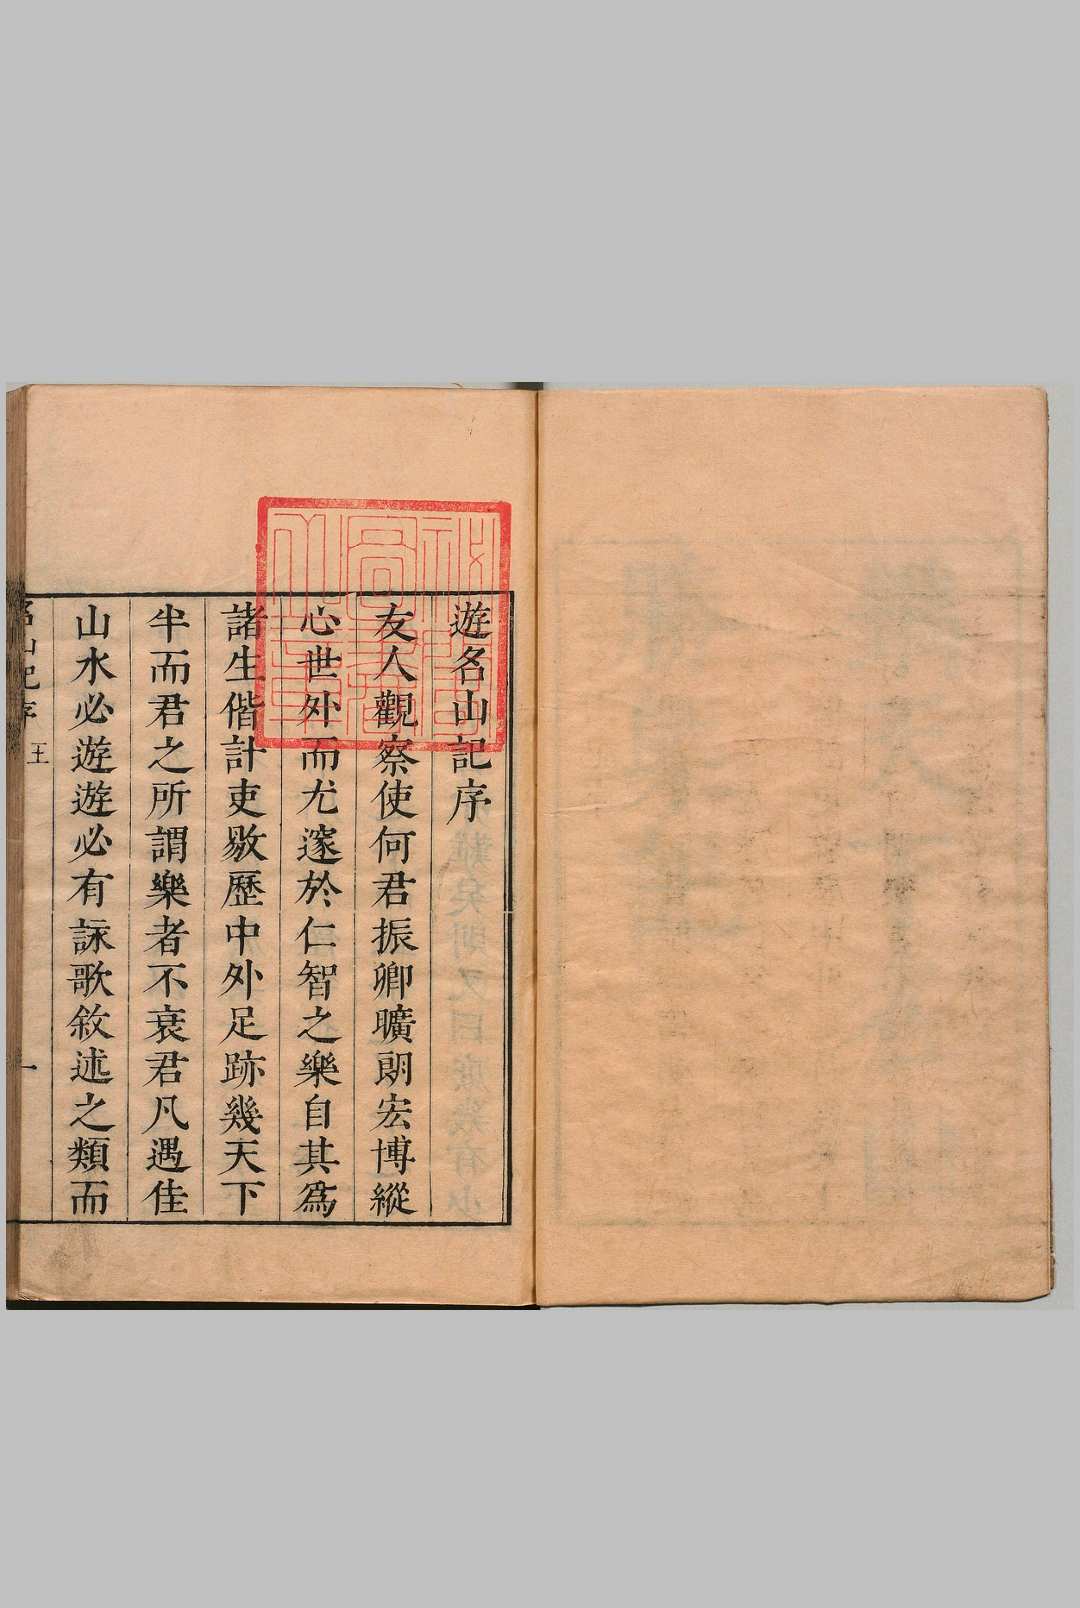 遊名山記序
友人觀察使何君振卿曠朗宏博縱
心世外而尤邃於仁智之樂自其為
諸生偕計吏敭歷中外足跡幾天下
半而君之所謂樂者不衰君凡遇佳
山水必遊遊必有詠歌敘述之類而
名山記序 王 一